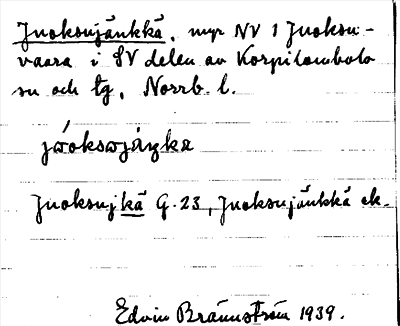 Juoksujänkkä, myr NV 1 Juoksu-
vaara i SV delen av Korpilombolo
sn och tg, Norrb. l.
jẃoksωjáŋka
Juoksujkä G. 23, Juoksujänkkä ek.
Edvin Brännström 1939.